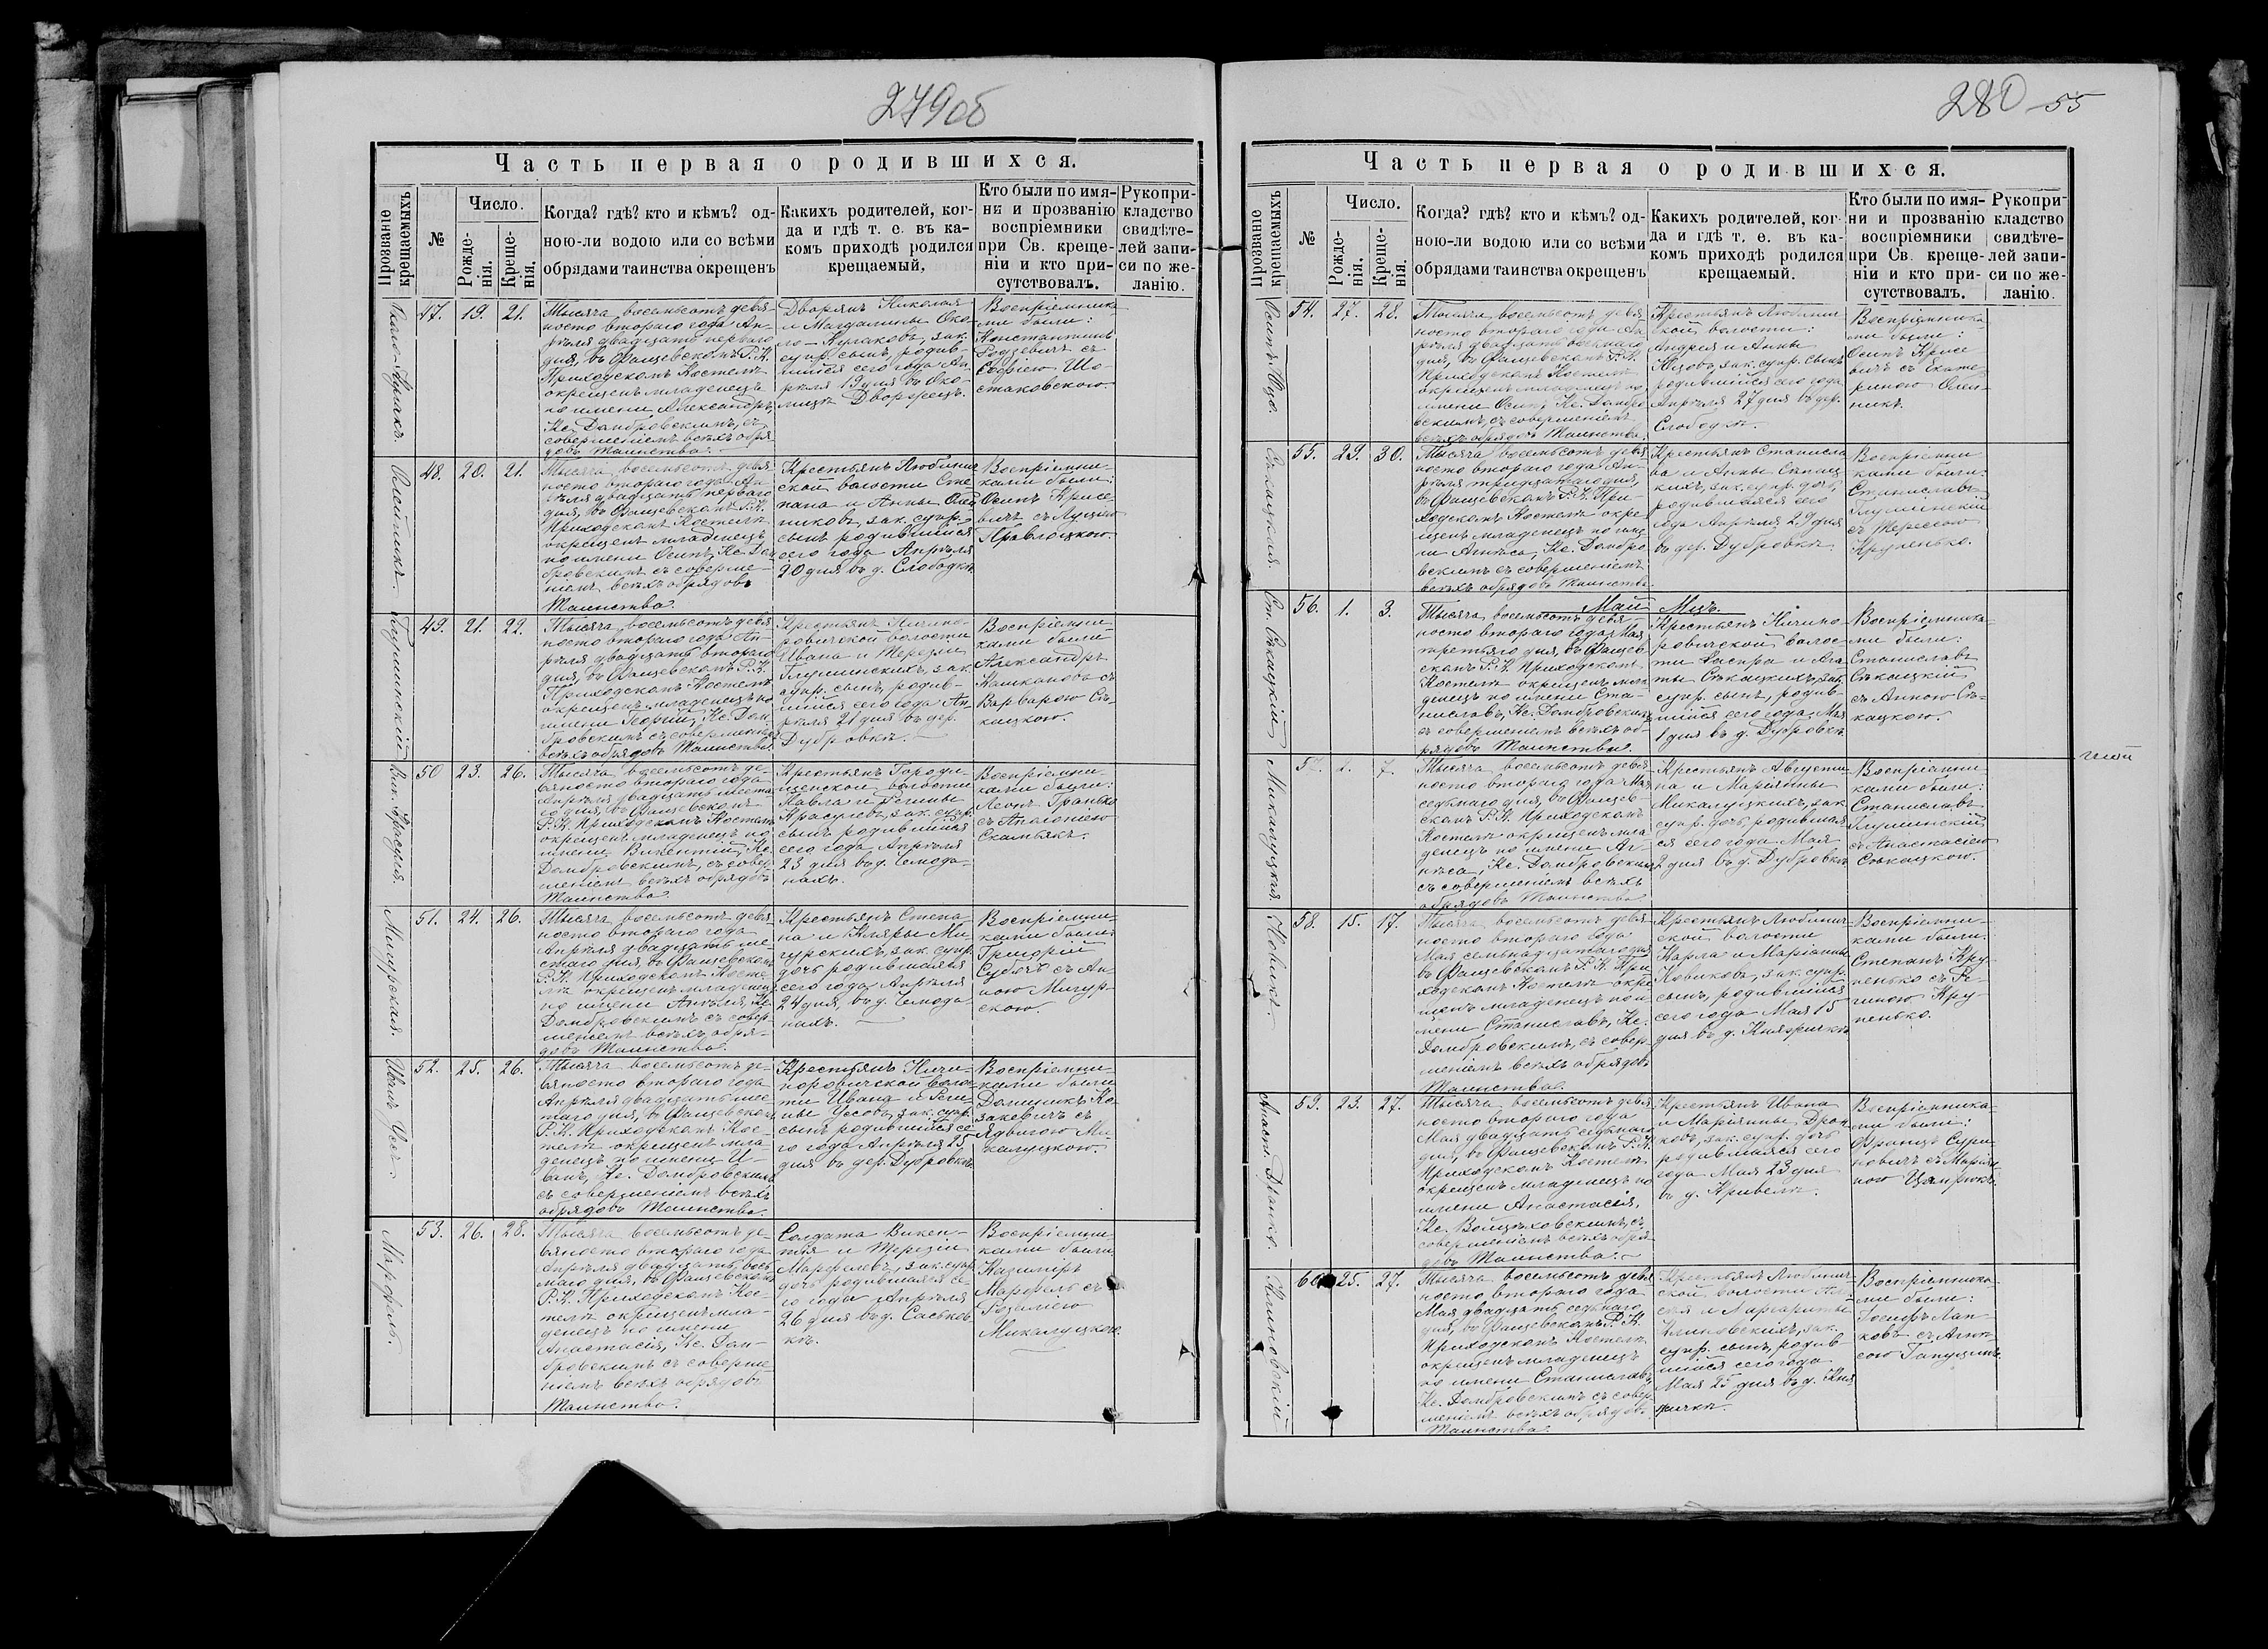 279об
Часть первая о родившихся.
Прозваніе крещаемыхъ
№
Число.
Рожденія.
Крещенія.
Когда? гдѣ? кто и кѣмъ? од-
ною-ли водою или со всѣми
обрядами таинства окрещенъ
Какихъ родителей, ког-
да и гдѣ т. е. въ ка-
комъ приходѣ родился
крещаемый.
Кто были по имя-
ни и прозванію
воспріемники
при Св. креще-
ніи и кто при-
сутствовалъ.
Рукопри-
кладство
свидѣте-
лей запи-
си по же-
ланію.
47. 19. 21.
Тысяча восемьсотъ девя-
носто втораго года Ап-
рѣля двадцать перваго
дня, въ Фащевскомъ Р. К.
Приходскомъ Костелѣ
окрещенъ младенецъ
по имени Александръ,
Кс. Домбровскимъ, съ
совершеніемъ всѣхъ обря
довъ Таинства.
Дворянъ Николая
и Магдалины Око-
ло-Кулаковъ, зак.
супр. сынъ, родив-
шійся сего года Ап-
рѣля 19 дня въ Око-
лицѣ Дворжецъ.
Воспріемника
ми были:
Константинъ
Родзевичъ съ
Софіею Шо-
стаковскою.
Олейникъ
48. 20. 21.
Тысяча восемьсотъ девя-
носто втораго года Ап-
рѣля двадцать перваго
дня, въ Фащевскомъ Р. К.
Приходскомъ Костелѣ
окрещенъ младенецъ
по имени Осипъ, Кс. Дом
бровскимъ съ соверше-
ніемъ всѣхъ обрядовъ
Таинства.
Крестьянъ Любинич
ской волости Сте-
пана и Анны Олей
никовъ, зак. супр.
сынъ родившійся
сего года Апрѣля
20 дня въ д. Слободкѣ
Воспріемни-
ками были:
Осипъ Крисе
вичъ съ Луціею
Глушинскій
49. 21. 22.
Тысяча восемьсотъ девя
носто втораго года Ап-
рѣля двадцать втораго
дня, въ Фащевскомъ Р. К.
Приходскомъ Костелѣ
окрещенъ младенецъ по
имени Георгій, Кс. Дом-
бровскимъ съ совершеніемъ
всѣхъ обрядовъ Таинства.
Крестьянъ Ничипо-
ровичской волости
Ивана и Терезіи
Глушинскихъ, зак.
супр. сынъ, родив-
шійся сего года Ап-
рѣля 21 дня въ дер.
Дубровкѣ.
Воспріемни
ками были
Александръ
съ
Варварою Сѣ-
кацкою.
Вик. Красуля.
50 23. 26.
Тысяча восемьсотъ де-
вяносто втораго года
Апрѣля двадцать шеста
го дня, въ Фащевскомъ
Р. К. Приходскомъ Костелѣ
окрещенъ младенецъ по
имени Викентій, Кс.
Домбровскимъ, съ совер-
шеніемъ всѣхъ обрядовъ
Таинства
Крестьянъ Городи-
щенской волости
Павла и Регины
Красулевъ, зак. супр.
сынъ родившійся
сего года Апрѣля
23 дня въ д. Чемода-
нахъ.
Воспріемни-
ками были:
Леонъ Гранько
съ Аполоніею
Мигурская.
51. 24. 26.
Тысяча восемьсотъ девя
носто втораго года
Апрѣля двадцать ше-
стаго дня, въ Фащевскомъ
Р. К. Приходскомъ Косте-
лѣ окрещенъ младенецъ
по имени Анѣля, Кс.
Домбровскимъ съ совер-
шеніемъ всѣхъ обря-
довъ Таинства.
Крестьянъ Степа
на и Кляры Ми-
гурскихъ, зак. супр.
дочь родившаяся
сего года Апрѣля
24 дня, въ д. Чемода
нахъ.
Воспріемни-
ками были:
Григорій
съ Ан-
ною Мигур-
скою.
Иванъ Усъ.
52. 25. 26.
Тысяча восемьсотъ де-
вяносто втораго года
Апрѣля двадцать шес-
таго дня, въ Фащевскомъ
Р. К. Приходскомъ Кос-
телѣ окрещенъ мла
денецъ по имени И-
ванъ, Кс. Домбровскимъ
съ совершеніемъ всѣхъ
обрядовъ Таинства.
Крестьянъ Ничи-
поровичской волос-
ти Ивана и Реги-
ны Усовъ, зак. супр.
сынъ родившійся се-
го года Апрѣля 25
дня въ дер. Дубровкѣ.
Воспріемни-
ками были
Доминикъ Ко-
закевичъ съ
Ядвигою Ми-
калуцкою.
Марфель.
53. 26. 28.
Тысяча восемьсотъ де
вяносто втораго года
Апрѣля двадцать вось
маго дня, въ Фащевскомъ
Р. К. Приходскомъ Кос-
телѣ окрещенъ мла-
денецъ по имени
Анастасія, Кс. Дом-
бровскимъ съ соверше
ніемъ всѣхъ обрядовъ
Таинства.
Солдата Викен-
тія и Терезіи
Марфелевъ, зак. супр.
дочь родившаяся се-
го года Апрѣля
26 дня въ д. Саськов-
кѣ.
Воспріемни-
ками были
Казиміръ
Марфель съ
Розаліею
Микалуцкою.
280 55
Часть первая о родившихся.
Прозваніе крещаемыхъ
№
Число.
Рожденія.
Крещенія.
Когда? гдѣ? кто и кѣмъ? од-
ною-ли водою или со всѣми
обрядами таинства окрещенъ
Какихъ родителей, ког-
да и гдѣ т. е. въ ка-
комъ приходѣ родился
крещаемый.
Кто были по имя-
ни и прозванію
воспріемники
при Св. креще-
ніи и кто при-
сутствовалъ.
Рукопри-
кладство
свидѣте-
лей запи-
си по же-
ланію.
54. 27. 28.
Тысяча восемьсотъ девя
носто втораго года Ап
рѣля двадцать восьмаго
дня, въ Фащевскомъ Р. К.
Приходскомъ Костелѣ
окрещенъ младенецъ по
имени Осипъ, Кс. Домбро
вскимъ, съ совершеніемъ
всѣхъ обрядовъ Таинства.
Крестьянъ Любинич
ской волости:
Андрея и Анны
зак. супр. сынъ
родившійся сего года
Апрѣля 27 дня въ дер.
Слободкѣ.
Воспріемника-
ми были:
Осипъ Крисе
вичъ съ Екате
риною Олей-
никъ.
Сѣкацкая.
55. 29. 30.
Тысяча восемьсотъ девя
носто втораго года Ап-
рѣля тридцатаго дня,
въ Фащевскомъ Р. К. При-
ходскомъ Костелѣ окре
щенъ младенецъ по име
ни Агнѣса, Кс. Домбро
вскимъ съ совершеніемъ
всѣхъ обрядовъ Таинства.
Крестьянъ Станисла
ва и Анны Сѣкац
кихъ, зак. супр. дочь,
родившаяся сего
года Апрѣля 29 дня
въ дер. Дубровкѣ.
Воспріемни
ками были:
Станиславъ
Глушинскій
съ Терезою
Крупенько.
Май Мцъ.
Ст. Сѣкацкій
56. 1. 3.
Тысяча восемьсотъ девя-
носто втораго года Мая
третьяго дня, въ Фащев-
скомъ Р. К. Приходскомъ
Костелѣ окрещенъ мла
денецъ по имени Ста-
ниславъ, Кс. Домбровскимъ
съ совершеніемъ всѣхъ об-
рядовъ Таинства.
Крестьянъ Ничипо-
ровичской волос-
ти Каспра и Ага-
ты Сѣкацкихъ, зак.
супр. сынъ, родив-
шійся сего года Мая
1 дня въ д. Дубровкѣ
Воспріемника-
ми были:
Станиславъ
Сѣкацкій
съ Анною Сѣ-
кацкою.
Микалуцкая.
57. 2. 7.
Тысяча восемьсотъ девя
носто втораго года Мая
седьмаго дня, въ Фащев-
скомъ Р. К. Приходскомъ
Костелѣ окрещенъ мла
денецъ по имени Аг-
нѣса, Кс. Домбровскимъ
съ совершеніемъ всѣхъ
обрядовъ Таинства
Крестьянъ Августи-
на и Маріанны
Микалуцкихъ, зак.
супр. дочь, родившая
ся сего года Мая
2 дня въ д. Дубровкѣ
Воспріемни-
ками были:
Станиславъ
Глушинскій
съ Анастасіею
Сѣкацкою.
Новикъ.
58. 15. 17.
Тысяча восемьсотъ девя
носто втораго года
Мая семьнадцатаго дня
въ Фащевскомъ Р. К. При
ходскомъ Костелѣ окре
щенъ младенецъ по и
мени Станиславъ, Кс.
Домбровскимъ, съ совер-
шеніемъ всѣхъ обрядовъ
Таинства.
Крестьянъ Любинич
ской волости
Карла и Маріанны
Новиковъ, зак. супр.
сынъ, родившійся
сего года Мая 15
дня въ д. Княжицкѣ
Воспріемни-
ками были:
Степанъ Кру
пенько съ Ре-
гиною Кру
пенько.
Анаст. Дранко.
59. 23. 27.
Тысяча восемьсотъ девя
носто втораго года
Мая двадцать седьмаго
дня, въ Фащевскомъ Р. К.
Приходскомъ Костелѣ
окрещенъ младенецъ по
имени Анастасія,
Кс. Войцѣховскимъ, съ
совершеніемъ всѣхъ обря
довъ Таинства.
Крестьянъ Ивана
и Маріанны Дран
ковъ, зак. супр. дочь
родившаяся сего
года Мая 23 дня
въ д. Кривелѣ.
Воспріемника-
ми были:
Францъ Сури-
новичъ съ Маріан
ною
Климовскій
60 25. 27.
Тысяча восемьсотъ девя
носто втораго года
Мая двадцать седьмаго
дня, въ Фащевскомъ Р. К.
Приходскомъ Костелѣ
окрещенъ младенецъ
по имени Станиславъ,
Кс. Домбровскимъ съ совер-
шеніемъ всѣхъ обрядовъ
Таинства.
Крестьянъ Любинич-
ской волости
и Маргариты
Климовскихъ, зак.
супр. сынъ, родив-
шійся сего года
Мая 25 дня въ д. Кня-
жицкѣ.
Воспріемника-
ми были:
Лап-
ковъ съ Агнѣ-
сою